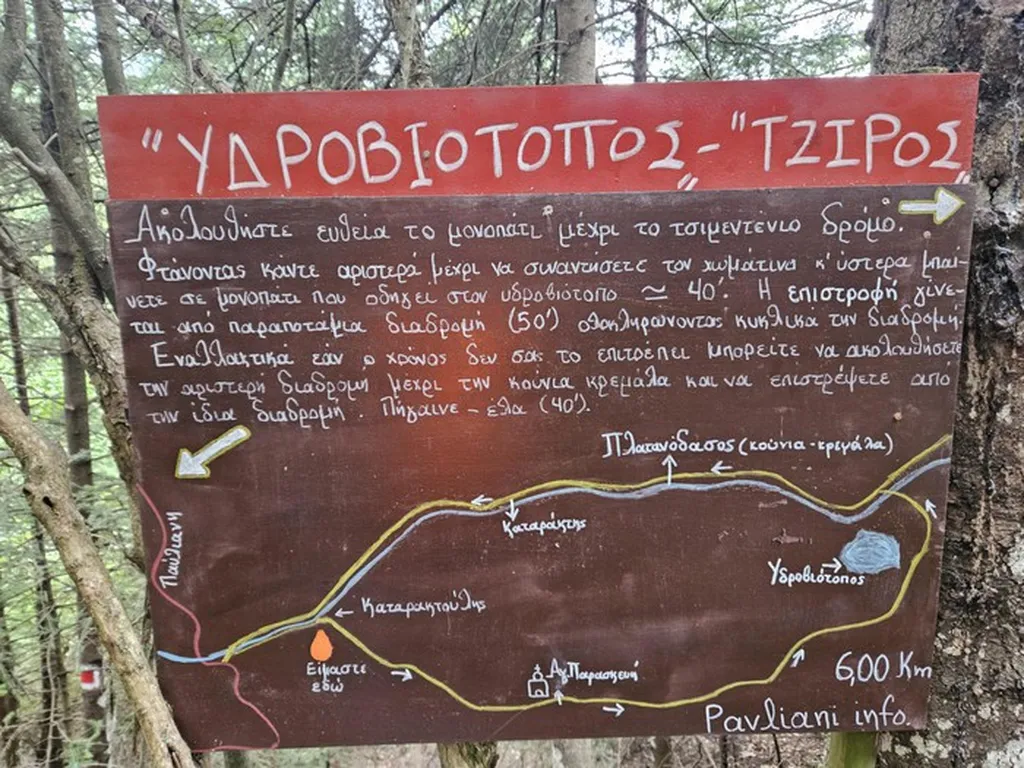 "ΥΔΡΟΒΙΟΤΟΠΟΣ"-"ΤΖΙΡΟΣ"
Ακολουθήστε ευθεία το μονοπάτι μέχρι το τσιμεντένιο δρόμο.
Φτάνοντας κάντε αριστερά μέχρι να συναντήσετε τον χωμάτινο κ' ύστερα μπαί-
νετε σε μονοπάτι που οδηγεί στον υδροβιότοπο ≃ 40'. Η επιστροφή γίνε-
ται από παραποτάμια διαδρομή (50') ολοκληρώνοντας κυκλικά την διαδρομή.
Εναλλακτικά εάν ο χρόνος δεν σας το επιτρέπει μπορείτε να ακολουθήσετε
την αριστερή διαδρομή μέχρι την κούνια κρεμάλα και να επιστρέψετε από
την ίδια διαδρομή. Πήγαινε - έλα (40').
Πλατανόδασος (κούνια - κρεμάλα)
Καταράκτης
Παύλιανη
Υδροβιότοπος
Καταρακτούλης
Είμαστε
εδώ
Αγ. Παρασκευή
6,00 Km
Pavliani info.